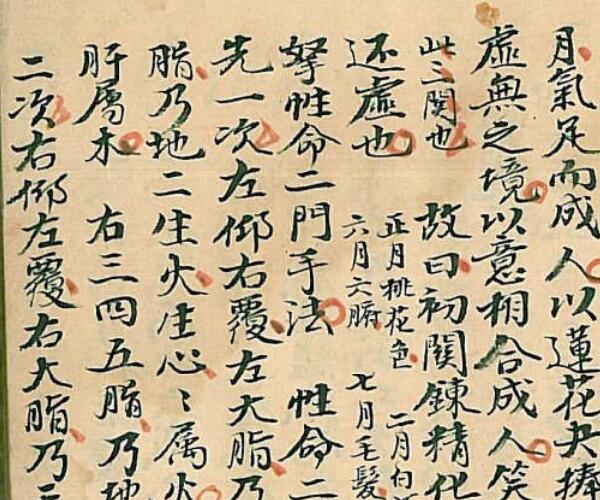 月氣足而成人以蓮花央捧
虛無之境以意相合成人笑
此三関也　故曰初関鍊精化
正月桃花色　二月白
还虛也　六月六腑　七月毛髮
拏性命二門手法　性命二
先一次左仰右覆左大脂乃
脂乃地二生火生心〻属火
肝属木　右三四五脂乃地
二次右仰左覆右大脂乃二